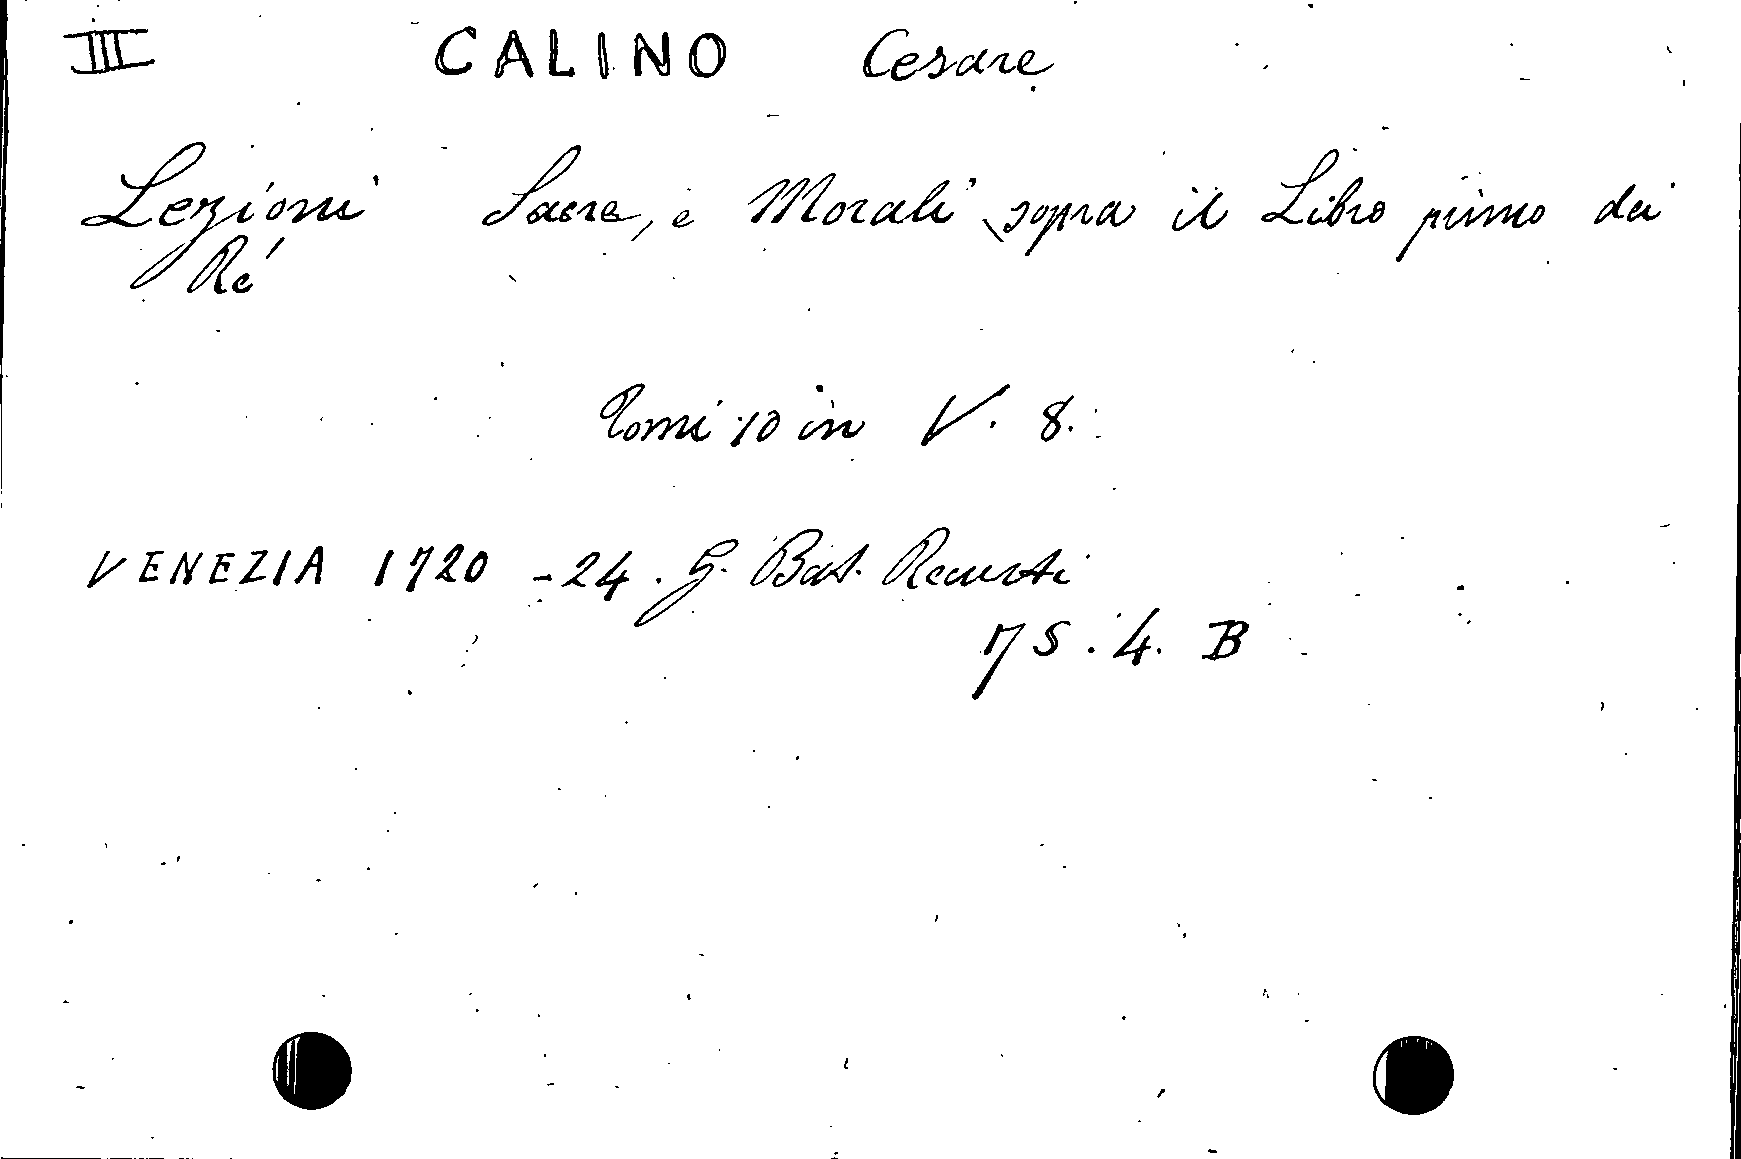 III CALINO Cesare
Lezioni Sacre, e Morali sopra il Libro primo dei
Ré
Tomi 10 in V. 8.
VENEZIA 1720 - 24. G. Bat. Recurti
75. 4. B